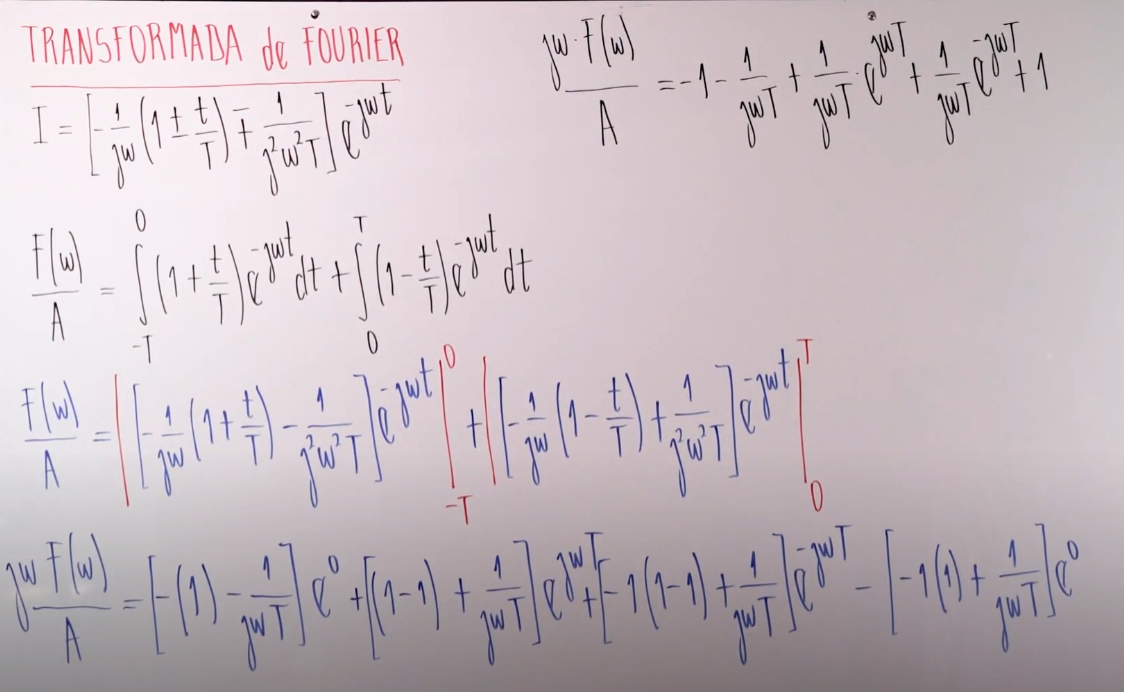 TRANSFORMADA de FOURIER
I = [-1/jw (1 ± t/T) ∓ 1/j²w²T] e^-jwt
F(w)/A = ∫_-T^0 (1 + t/T) e^-jwt dt + ∫_0^T (1 - t/T) e^-jwt dt
F(w)/A = |[-1/jw (1 + t/T) - 1/j²w²T] e^-jwt|_-T^0 + |[-1/jw (1 - t/T) + 1/j²w²T] e^-jwt|_0^T
jw F(w)/A = [-(1) - 1/jwT] e^0 + [(1-1) + 1/jwT] e^jwT + [-1(1-1) + 1/jwT] e^-jwT - [-1(1) + 1/jwT] e^0
jw·F(w)/A = -1 - 1/jwT + 1/jwT · e^jwT + 1/jwT e^-jwT + 1